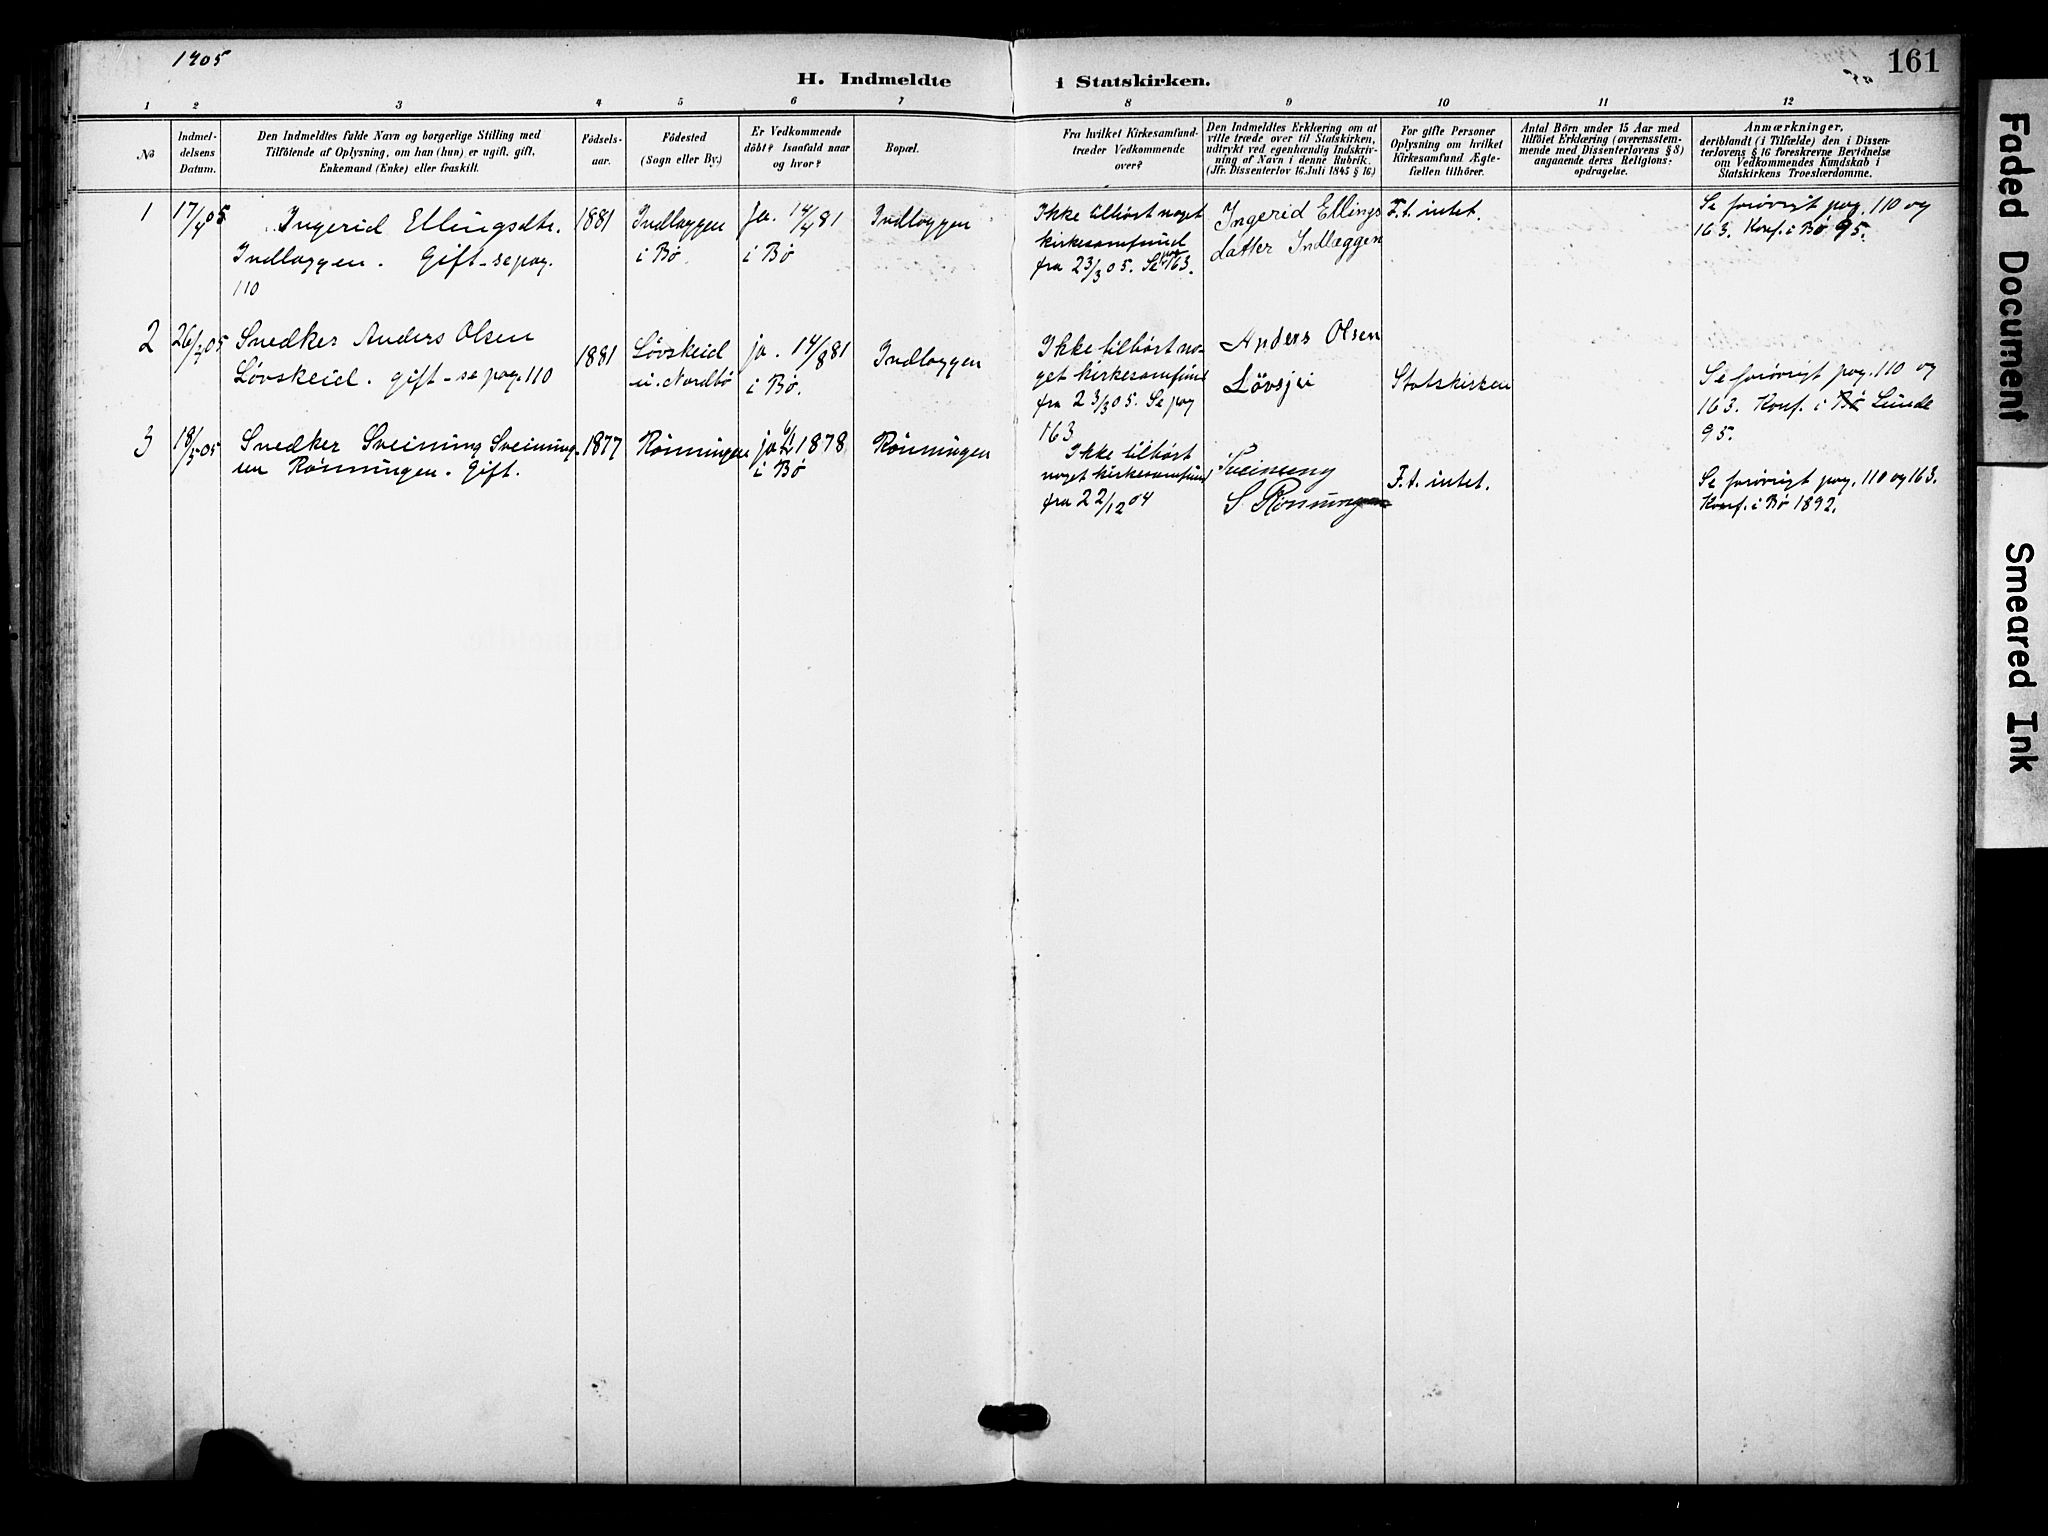 1905
161
H. Indmeldte i Statskirken.
1 2 3 4 5 6 7 8 9 10 11 12
No
Indmel-
delsens
Datum.
Den Indmeldtes fulde Navn og borgerlige Stilling med
Tilföiende af Oplysning, om han (hun) er ugift, gift,
Enkemand (Enke) eller fraskilt.
Födsels-
aar.
Födested
(Sogn eller By.)
Er Vedkommende
döbt? Isaafald naar
og hvor?
Bopæl.
Fra hvilket Kirkesamfund
træder Vedkommende
over?
Den Indmeldtes Erklæring om at
ville træde over til Statskirken,
udtrykt ved egenhændig Indskriv-
ning af Navn i denne Rubrik.
(Jfr. Dissenterlov 16. Juli 1845 § 16)
For gifte Personer
Oplysning om hvilket
Kirkesamfund Ægte-
fællen tilhörer.
Antal Börn under 15 Aar med
tilföiet Erklæring (overensstem-
mende med Dissenterlovens § 8)
angaaende deres Religions-
opdragelse.
Anmærkninger,
deriblandt (i Tilfælde) den i Dissen-
terlovens § 16 foreskrevne Bevidnelse
om Vedkommendes Kundskab i
Statskirkens Troeslærdomme.
1
17/4 05
Ingerid Ellingsdtr.
Indlæggen. Gift - se pag.
110
1881
Indlæggen
i Bø.
Ja. 14/4 81
i Bø
Indlæggen
Ikke tilhørt noget
kirkesamfund
fra 23/3 05. Se pag 163.
Ingerid Ellings
datter Indlæggen
F.t. intet.
Se forøvrigt pag. 110 og
163. Konf. i Bø 95.
2
26/4 05
Snedker Anders Olsen
Løvskeid. gift - se pag. 110
1881
Løvskeid
i Nordbø
ja. 14/8 81
i Bø.
Indlæggen
Ikke tilhørt no-
get kirkesamfund
fra 23/3 05. Se pag
163
Anders Olsen
Lövsjei
Statskirken
Se forøvrigt pag. 110 og
163. Konf. i Bø Lunde
95.
3
18/5 05
Snedker Sveinung Sveinung-
sen Rønningen. Gift.
1877
Rønningen
ja 6/1 1878
i Bø
Rønningen
Ikke tilhørt
noget kirkesamfund
fra 22/12 04
Sveinung
S. Rønningen
F.t. intet.
Se forøvrigt pag. 110 og 163.
Konf. i Bø 1892.
Faded Document
Smeared Ink